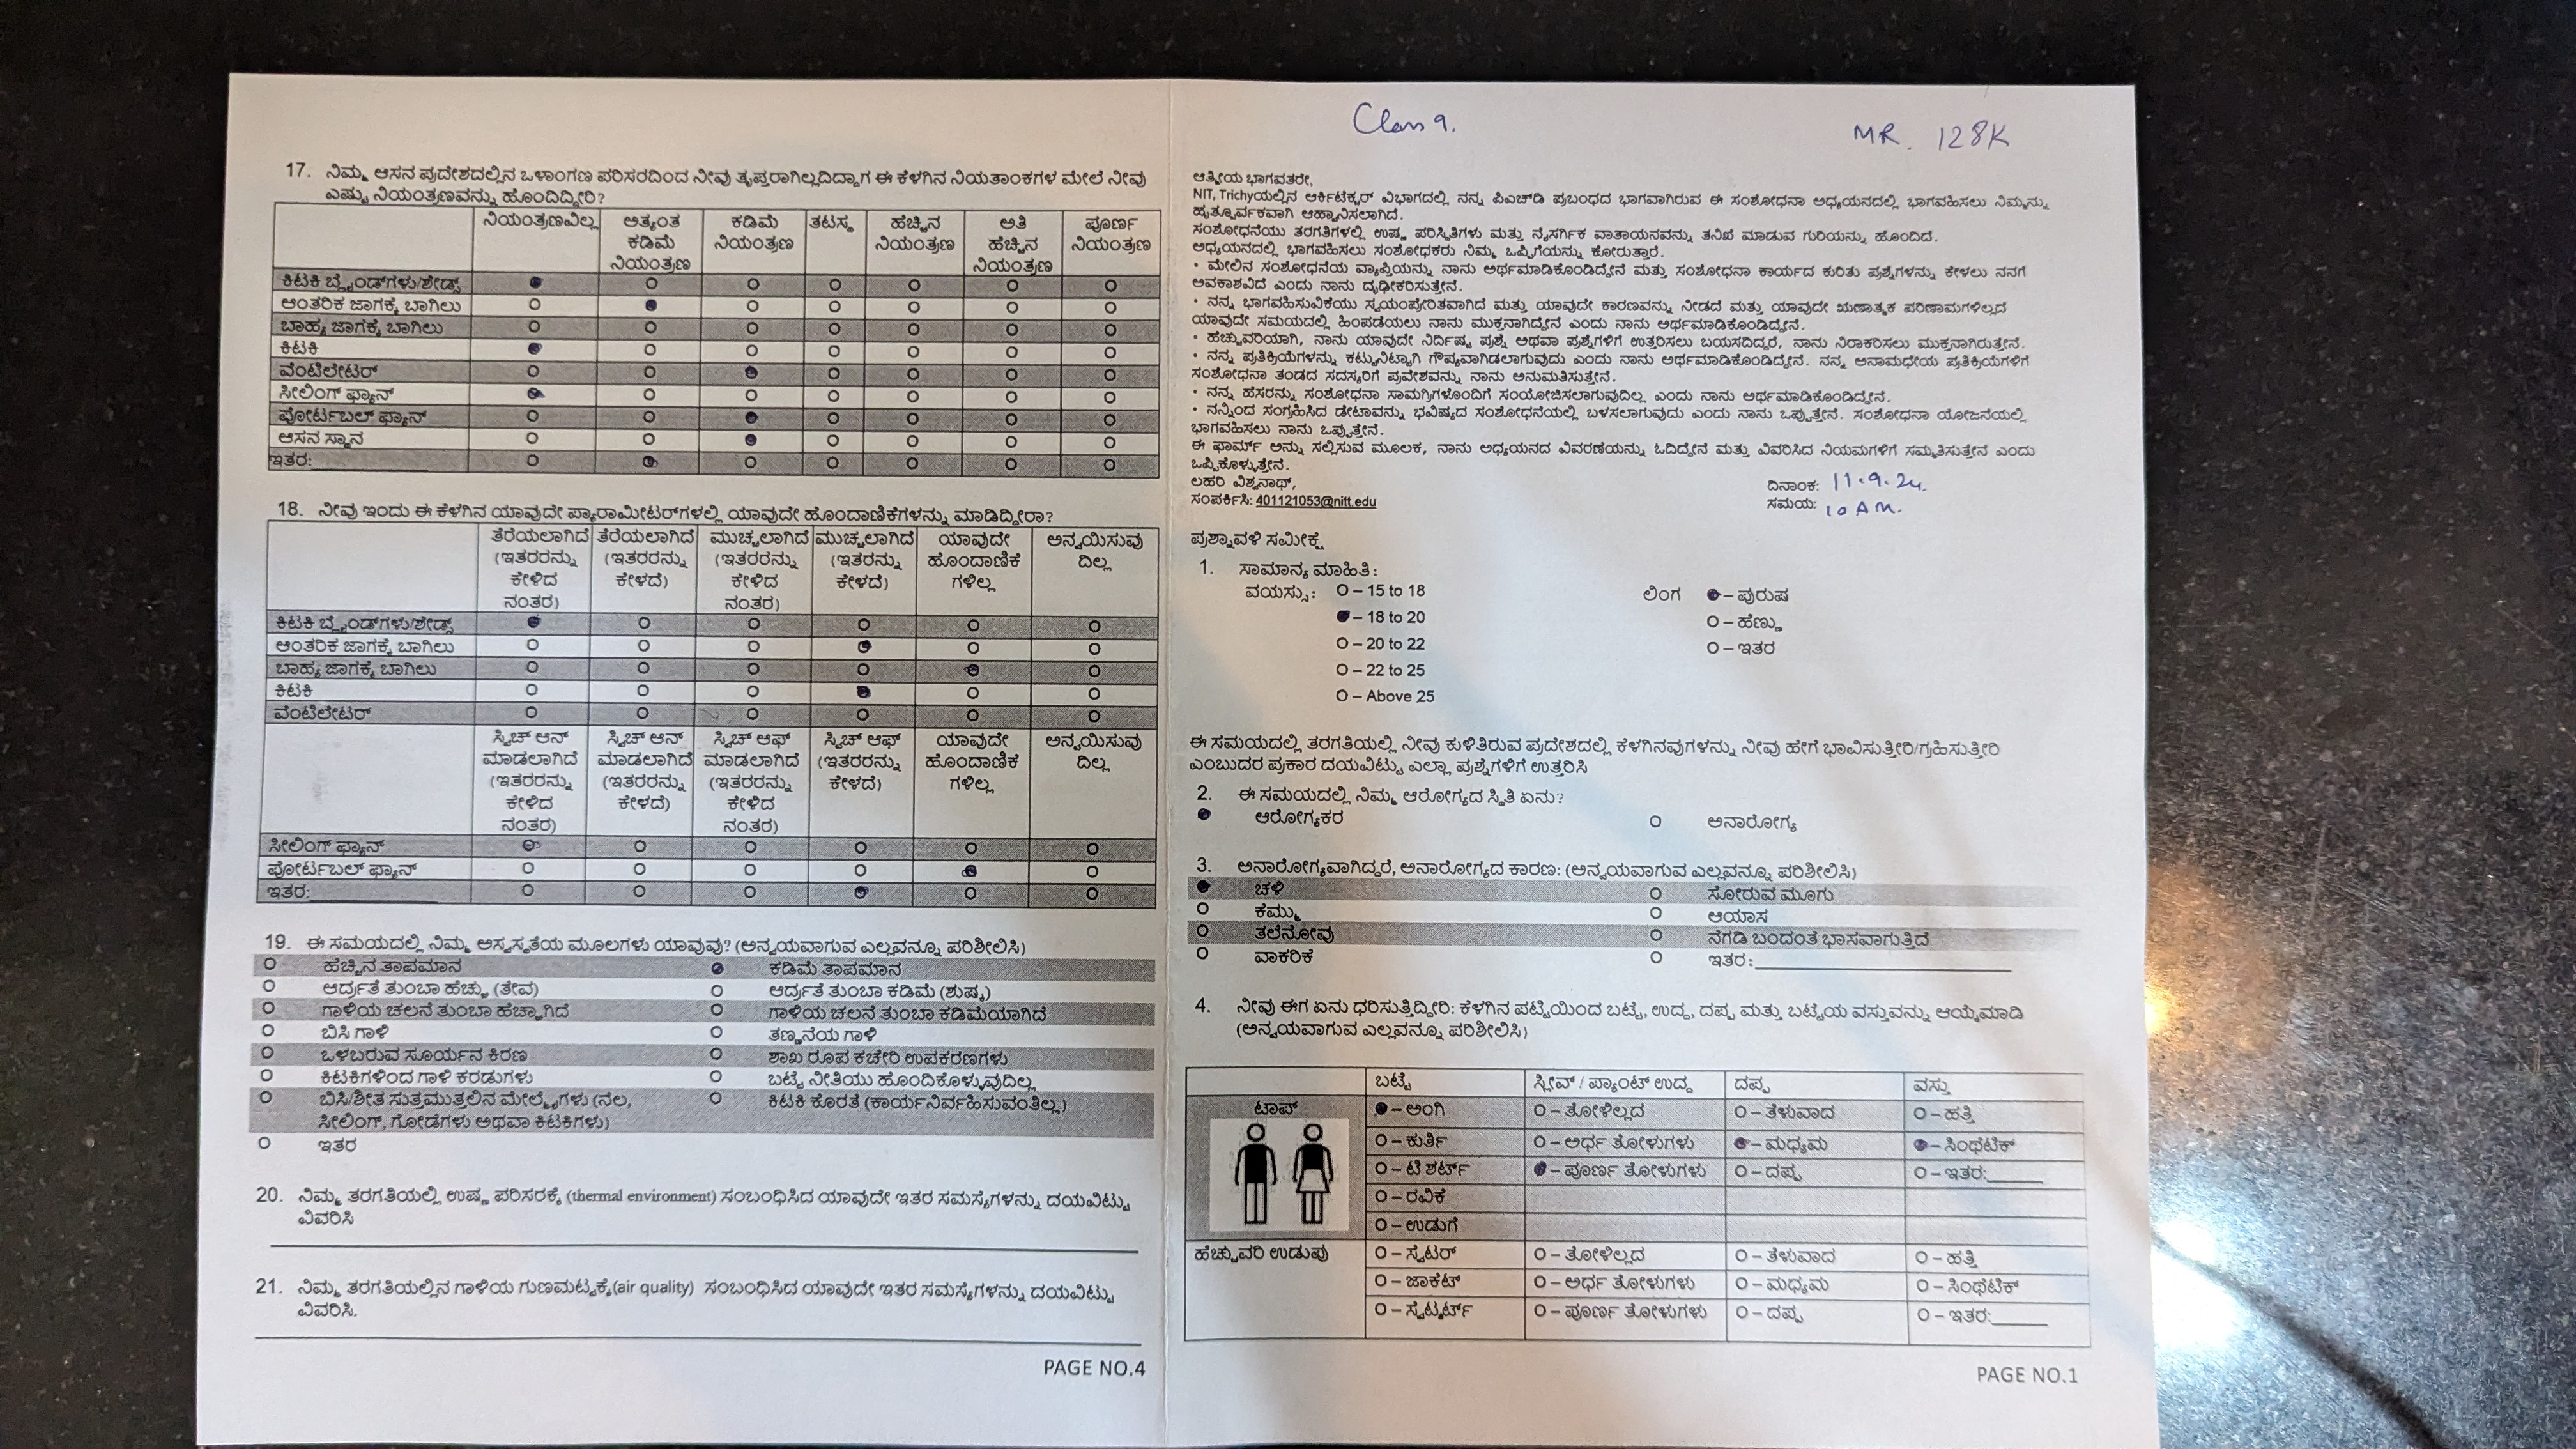 17. ನಿಮ್ಮ ಆಸನ ಪ್ರದೇಶದಲ್ಲಿನ ಒಳಾಂಗಣ ಪರಿಸರದಿಂದ ನೀವು ತೃಪ್ತರಾಗಿಲ್ಲದಿದ್ದಾಗ ಈ ಕೆಳಗಿನ ನಿಯತಾಂಕಗಳ ಮೇಲೆ ನೀವು
ಎಷ್ಟು ನಿಯಂತ್ರಣವನ್ನು ಹೊಂದಿದ್ದೀರಿ?
ನಿಯಂತ್ರಣವಿಲ್ಲ ಅತ್ಯಂತ ಕಡಿಮೆ ನಿಯಂತ್ರಣ ಕಡಿಮೆ ನಿಯಂತ್ರಣ ತಟಸ್ಥ ಹೆಚ್ಚಿನ ನಿಯಂತ್ರಣ ಅತಿ ಹೆಚ್ಚಿನ ನಿಯಂತ್ರಣ ಪೂರ್ಣ ನಿಯಂತ್ರಣ
ಕಿಟಕಿ ಬ್ಲೈಂಡ್‌ಗಳು/ಶೇಡ್ಸ್
ಆಂತರಿಕ ಜಾಗಕ್ಕೆ ಬಾಗಿಲು
ಬಾಹ್ಯ ಜಾಗಕ್ಕೆ ಬಾಗಿಲು
ಕಿಟಕಿ
ವೆಂಟಿಲೇಟರ್
ಸೀಲಿಂಗ್ ಫ್ಯಾನ್
ಪೋರ್ಟಬಲ್ ಫ್ಯಾನ್
ಆಸನ ಸ್ಥಾನ
ಇತರ:
18. ನೀವು ಇಂದು ಈ ಕೆಳಗಿನ ಯಾವುದೇ ಪ್ಯಾರಾಮೀಟರ್‌ಗಳಲ್ಲಿ ಯಾವುದೇ ಹೊಂದಾಣಿಕೆಗಳನ್ನು ಮಾಡಿದ್ದೀರಾ?
ತೆರೆಯಲಾಗಿದೆ (ಇತರರನ್ನು ಕೇಳಿದ ನಂತರ) ತೆರೆಯಲಾಗಿದೆ (ಇತರರನ್ನು ಕೇಳದೆ) ಮುಚ್ಚಲಾಗಿದೆ (ಇತರರನ್ನು ಕೇಳಿದ ನಂತರ) ಮುಚ್ಚಲಾಗಿದೆ (ಇತರರನ್ನು ಕೇಳದೆ) ಯಾವುದೇ ಹೊಂದಾಣಿಕೆಗಳಿಲ್ಲ ಅನ್ವಯಿಸುವುದಿಲ್ಲ
ಕಿಟಕಿ ಬ್ಲೈಂಡ್‌ಗಳು/ಶೇಡ್ಸ್
ಆಂತರಿಕ ಜಾಗಕ್ಕೆ ಬಾಗಿಲು
ಬಾಹ್ಯ ಜಾಗಕ್ಕೆ ಬಾಗಿಲು
ಕಿಟಕಿ
ವೆಂಟಿಲೇಟರ್
ಸ್ವಿಚ್ ಆನ್ ಮಾಡಲಾಗಿದೆ (ಇತರರನ್ನು ಕೇಳಿದ ನಂತರ) ಸ್ವಿಚ್ ಆನ್ ಮಾಡಲಾಗಿದೆ (ಇತರರನ್ನು ಕೇಳದೆ) ಸ್ವಿಚ್ ಆಫ್ ಮಾಡಲಾಗಿದೆ (ಇತರರನ್ನು ಕೇಳಿದ ನಂತರ) ಸ್ವಿಚ್ ಆಫ್ (ಇತರರನ್ನು ಕೇಳದೆ) ಯಾವುದೇ ಹೊಂದಾಣಿಕೆಗಳಿಲ್ಲ ಅನ್ವಯಿಸುವುದಿಲ್ಲ
ಸೀಲಿಂಗ್ ಫ್ಯಾನ್
ಪೋರ್ಟಬಲ್ ಫ್ಯಾನ್
ಇತರ:
19. ಈ ಸಮಯದಲ್ಲಿ ನಿಮ್ಮ ಅಸ್ವಸ್ಥತೆಯ ಮೂಲಗಳು ಯಾವುವು? (ಅನ್ವಯವಾಗುವ ಎಲ್ಲವನ್ನೂ ಪರಿಶೀಲಿಸಿ)
ಹೆಚ್ಚಿನ ತಾಪಮಾನ ಕಡಿಮೆ ತಾಪಮಾನ
ಆರ್ದ್ರತೆ ತುಂಬಾ ಹೆಚ್ಚು (ತೇವ) ಆರ್ದ್ರತೆ ತುಂಬಾ ಕಡಿಮೆ (ಶುಷ್ಕ)
ಗಾಳಿಯ ಚಲನೆ ತುಂಬಾ ಹೆಚ್ಚಾಗಿದೆ ಗಾಳಿಯ ಚಲನೆ ತುಂಬಾ ಕಡಿಮೆಯಾಗಿದೆ
ಬಿಸಿ ಗಾಳಿ ತಣ್ಣನೆಯ ಗಾಳಿ
ಒಳಬರುವ ಸೂರ್ಯನ ಕಿರಣ ಶಾಖ ರೂಪ ಕಚೇರಿ ಉಪಕರಣಗಳು
ಕಿಟಕಿಗಳಿಂದ ಗಾಳಿ ಕರಡುಗಳು ಬಟ್ಟೆ ನೀತಿಯು ಹೊಂದಿಕೊಳ್ಳುವುದಿಲ್ಲ
ಬಿಸಿ/ಶೀತ ಸುತ್ತಮುತ್ತಲಿನ ಮೇಲ್ಮೈಗಳು (ನೆಲ, ಕಿಟಕಿ ಕೊರತೆ (ಕಾರ್ಯನಿರ್ವಹಿಸುವಂತಿಲ್ಲ)
ಸೀಲಿಂಗ್, ಗೋಡೆಗಳು ಅಥವಾ ಕಿಟಕಿಗಳು)
ಇತರ
20. ನಿಮ್ಮ ತರಗತಿಯಲ್ಲಿ ಉಷ್ಣ ಪರಿಸರಕ್ಕೆ (thermal environment) ಸಂಬಂಧಿಸಿದ ಯಾವುದೇ ಇತರ ಸಮಸ್ಯೆಗಳನ್ನು ದಯವಿಟ್ಟು
ವಿವರಿಸಿ
21. ನಿಮ್ಮ ತರಗತಿಯಲ್ಲಿನ ಗಾಳಿಯ ಗುಣಮಟ್ಟಕ್ಕೆ(air quality) ಸಂಬಂಧಿಸಿದ ಯಾವುದೇ ಇತರ ಸಮಸ್ಯೆಗಳನ್ನು ದಯವಿಟ್ಟು
ವಿವರಿಸಿ.
PAGE NO.4
Class 9.
MR. 128K
ಆತ್ಮೀಯ ಭಾಗವತರೇ,
NIT, Trichyಯಲ್ಲಿನ ಆರ್ಕಿಟೆಕ್ಚರ್ ವಿಭಾಗದಲ್ಲಿ ನನ್ನ ಪಿಎಚ್‌ಡಿ ಪ್ರಬಂಧದ ಭಾಗವಾಗಿರುವ ಈ ಸಂಶೋಧನಾ ಅಧ್ಯಯನದಲ್ಲಿ ಭಾಗವಹಿಸಲು ನಿಮ್ಮನ್ನು
ಹೃತ್ಪೂರ್ವಕವಾಗಿ ಆಹ್ವಾನಿಸಲಾಗಿದೆ.
ಸಂಶೋಧನೆಯು ತರಗತಿಗಳಲ್ಲಿ ಉಷ್ಣ ಪರಿಸ್ಥಿತಿಗಳು ಮತ್ತು ನೈಸರ್ಗಿಕ ವಾತಾಯನವನ್ನು ತನಿಖೆ ಮಾಡುವ ಗುರಿಯನ್ನು ಹೊಂದಿದೆ.
ಅಧ್ಯಯನದಲ್ಲಿ ಭಾಗವಹಿಸಲು ಸಂಶೋಧಕರು ನಿಮ್ಮ ಒಪ್ಪಿಗೆಯನ್ನು ಕೋರುತ್ತಾರೆ.
• ಮೇಲಿನ ಸಂಶೋಧನೆಯ ವ್ಯಾಪ್ತಿಯನ್ನು ನಾನು ಅರ್ಥಮಾಡಿಕೊಂಡಿದ್ದೇನೆ ಮತ್ತು ಸಂಶೋಧನಾ ಕಾರ್ಯದ ಕುರಿತು ಪ್ರಶ್ನೆಗಳನ್ನು ಕೇಳಲು ನನಗೆ
ಅವಕಾಶವಿದೆ ಎಂದು ನಾನು ದೃಢೀಕರಿಸುತ್ತೇನೆ.
• ನನ್ನ ಭಾಗವಹಿಸುವಿಕೆಯು ಸ್ವಯಂಪ್ರೇರಿತವಾಗಿದೆ ಮತ್ತು ಯಾವುದೇ ಕಾರಣವನ್ನು ನೀಡದೆ ಮತ್ತು ಯಾವುದೇ ಋಣಾತ್ಮಕ ಪರಿಣಾಮಗಳಿಲ್ಲದೆ
ಯಾವುದೇ ಸಮಯದಲ್ಲಿ ಹಿಂಪಡೆಯಲು ನಾನು ಮುಕ್ತನಾಗಿದ್ದೇನೆ ಎಂದು ನಾನು ಅರ್ಥಮಾಡಿಕೊಂಡಿದ್ದೇನೆ.
• ಹೆಚ್ಚುವರಿಯಾಗಿ, ನಾನು ಯಾವುದೇ ನಿರ್ದಿಷ್ಟ ಪ್ರಶ್ನೆ ಅಥವಾ ಪ್ರಶ್ನೆಗಳಿಗೆ ಉತ್ತರಿಸಲು ಬಯಸದಿದ್ದರೆ, ನಾನು ನಿರಾಕರಿಸಲು ಮುಕ್ತನಾಗಿರುತ್ತೇನೆ.
• ನನ್ನ ಪ್ರತಿಕ್ರಿಯೆಗಳನ್ನು ಕಟ್ಟುನಿಟ್ಟಾಗಿ ಗೌಪ್ಯವಾಗಿಡಲಾಗುವುದು ಎಂದು ನಾನು ಅರ್ಥಮಾಡಿಕೊಂಡಿದ್ದೇನೆ. ನನ್ನ ಅನಾಮಧೇಯ ಪ್ರತಿಕ್ರಿಯೆಗಳಿಗೆ
ಸಂಶೋಧನಾ ತಂಡದ ಸದಸ್ಯರಿಗೆ ಪ್ರವೇಶವನ್ನು ನಾನು ಅನುಮತಿಸುತ್ತೇನೆ.
• ನನ್ನ ಹೆಸರನ್ನು ಸಂಶೋಧನಾ ಸಾಮಗ್ರಿಗಳೊಂದಿಗೆ ಸಂಯೋಜಿಸಲಾಗುವುದಿಲ್ಲ ಎಂದು ನಾನು ಅರ್ಥಮಾಡಿಕೊಂಡಿದ್ದೇನೆ.
• ನನ್ನಿಂದ ಸಂಗ್ರಹಿಸಿದ ಡೇಟಾವನ್ನು ಭವಿಷ್ಯದ ಸಂಶೋಧನೆಯಲ್ಲಿ ಬಳಸಲಾಗುವುದು ಎಂದು ನಾನು ಒಪ್ಪುತ್ತೇನೆ. ಸಂಶೋಧನಾ ಯೋಜನೆಯಲ್ಲಿ
ಭಾಗವಹಿಸಲು ನಾನು ಒಪ್ಪುತ್ತೇನೆ.
ಈ ಫಾರ್ಮ್ ಅನ್ನು ಸಲ್ಲಿಸುವ ಮೂಲಕ, ನಾನು ಅಧ್ಯಯನದ ವಿವರಣೆಯನ್ನು ಓದಿದ್ದೇನೆ ಮತ್ತು ವಿವರಿಸಿದ ನಿಯಮಗಳಿಗೆ ಸಮ್ಮತಿಸುತ್ತೇನೆ ಎಂದು
ಒಪ್ಪಿಕೊಳ್ಳುತ್ತೇನೆ.
ಲಹರಿ ವಿಶ್ವನಾಥ್,
ಸಂಪರ್ಕಿಸಿ: 401121053@nitt.edu
ದಿನಾಂಕ: 11.9.24.
ಸಮಯ: 10 AM.
ಪ್ರಶ್ನಾವಳಿ ಸಮೀಕ್ಷೆ
1. ಸಾಮಾನ್ಯ ಮಾಹಿತಿ:
ವಯಸ್ಸು: – 15 to 18 ಲಿಂಗ – ಪುರುಷ
– 18 to 20 – ಹೆಣ್ಣು
– 20 to 22 – ಇತರ
– 22 to 25
– Above 25
ಈ ಸಮಯದಲ್ಲಿ ತರಗತಿಯಲ್ಲಿ ನೀವು ಕುಳಿತಿರುವ ಪ್ರದೇಶದಲ್ಲಿ ಕೆಳಗಿನವುಗಳನ್ನು ನೀವು ಹೇಗೆ ಭಾವಿಸುತ್ತೀರಿ/ಗ್ರಹಿಸುತ್ತೀರಿ
ಎಂಬುದರ ಪ್ರಕಾರ ದಯವಿಟ್ಟು ಎಲ್ಲಾ ಪ್ರಶ್ನೆಗಳಿಗೆ ಉತ್ತರಿಸಿ
2. ಈ ಸಮಯದಲ್ಲಿ ನಿಮ್ಮ ಆರೋಗ್ಯದ ಸ್ಥಿತಿ ಏನು?
ಆರೋಗ್ಯಕರ ಅನಾರೋಗ್ಯ
3. ಅನಾರೋಗ್ಯವಾಗಿದ್ದರೆ, ಅನಾರೋಗ್ಯದ ಕಾರಣ: (ಅನ್ವಯವಾಗುವ ಎಲ್ಲವನ್ನೂ ಪರಿಶೀಲಿಸಿ)
ಚಳಿ ಸೋರುವ ಮೂಗು
ಕೆಮ್ಮು ಆಯಾಸ
ತಲೆನೋವು ನೆಗಡಿ ಬಂದಂತೆ ಭಾಸವಾಗುತ್ತಿದೆ
ವಾಕರಿಕೆ ಇತರ:
4. ನೀವು ಈಗ ಏನು ಧರಿಸುತ್ತಿದ್ದೀರಿ: ಕೆಳಗಿನ ಪಟ್ಟಿಯಿಂದ ಬಟ್ಟೆ, ಉದ್ದ, ದಪ್ಪ ಮತ್ತು ಬಟ್ಟೆಯ ವಸ್ತುವನ್ನು ಆಯ್ಕೆಮಾಡಿ
(ಅನ್ವಯವಾಗುವ ಎಲ್ಲವನ್ನೂ ಪರಿಶೀಲಿಸಿ)
ಬಟ್ಟೆ ಸ್ಲೀವ್ / ಪ್ಯಾಂಟ್ ಉದ್ದ ದಪ್ಪ ವಸ್ತು
ಟಾಪ್ – ಅಂಗಿ – ತೋಳಿಲ್ಲದ – ತೆಳುವಾದ – ಹತ್ತಿ
– ಕುರ್ತಿ – ಅರ್ಧ ತೋಳುಗಳು – ಮಧ್ಯಮ – ಸಿಂಥೆಟಿಕ್
– ಟಿ ಶರ್ಟ್ – ಪೂರ್ಣ ತೋಳುಗಳು – ದಪ್ಪ – ಇತರ:
– ರವಿಕೆ
– ಉಡುಗೆ
ಹೆಚ್ಚುವರಿ ಉಡುಪು – ಸ್ವೆಟರ್ – ತೋಳಿಲ್ಲದ – ತೆಳುವಾದ – ಹತ್ತಿ
– ಜಾಕೆಟ್ – ಅರ್ಧ ತೋಳುಗಳು – ಮಧ್ಯಮ – ಸಿಂಥೆಟಿಕ್
– ಸ್ವೆಟ್ಶರ್ಟ್ – ಪೂರ್ಣ ತೋಳುಗಳು – ದಪ್ಪ – ಇತರ:
PAGE NO.1